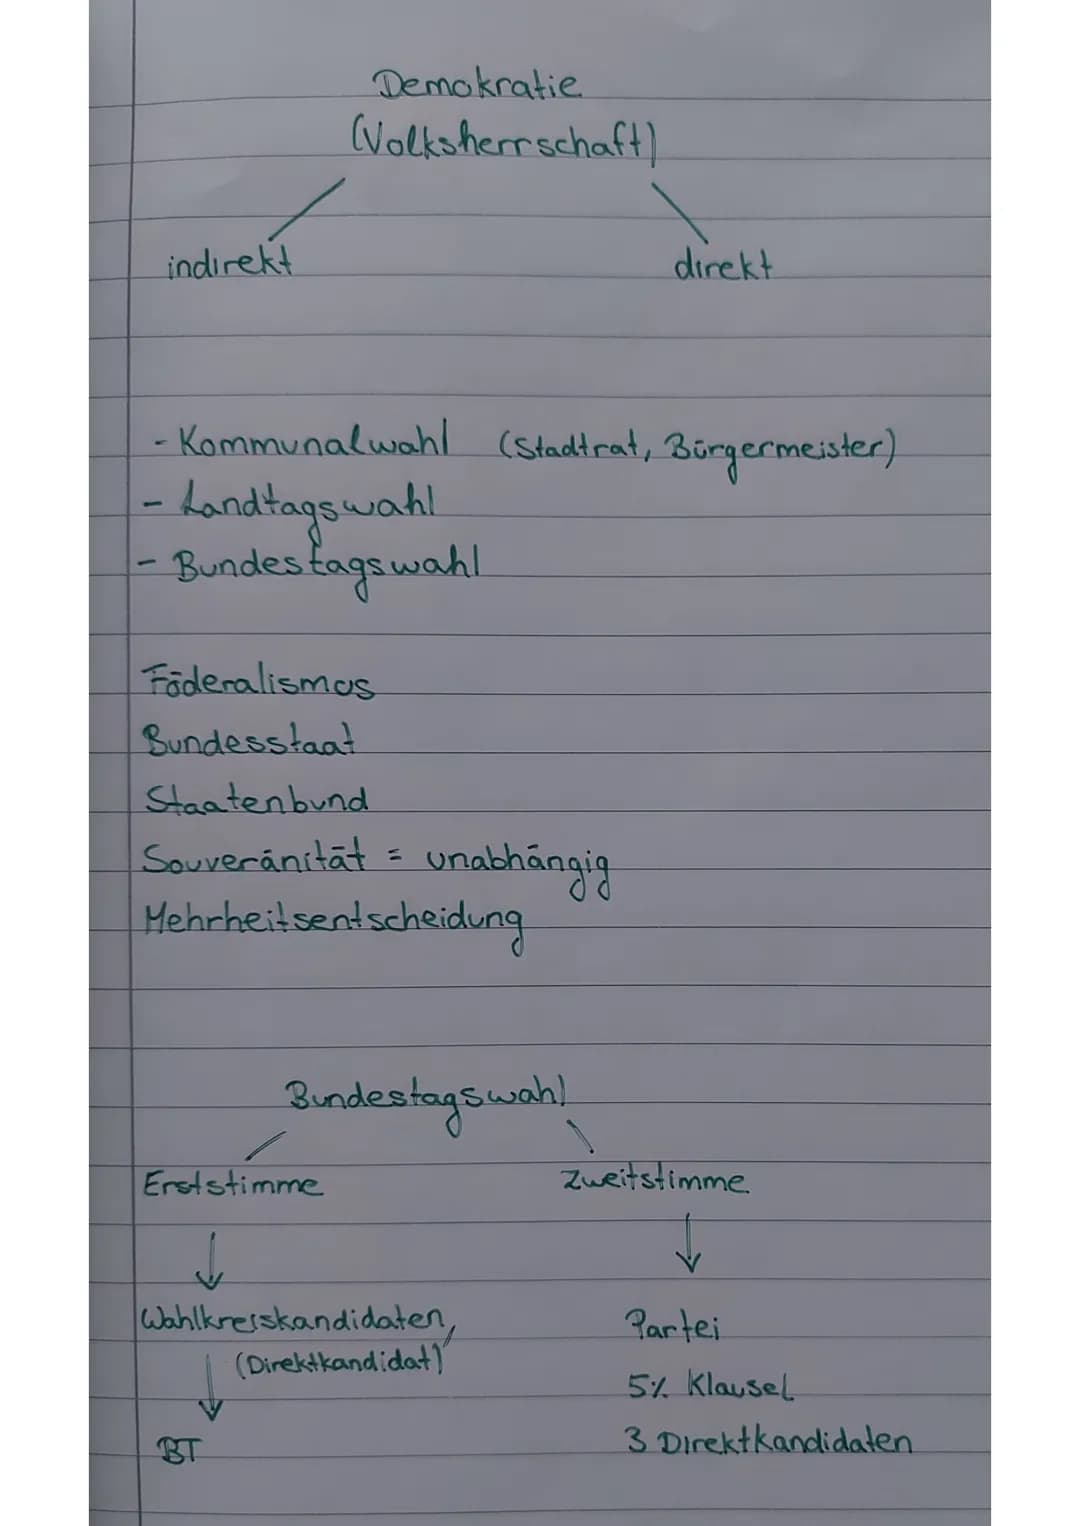 Demokratie
(Volksherrschaft)
indirekt direkt
- Kommunalwahl (Stadtrat, Bürgermeister)
- Landtagswahl
- Bundestagswahl
Föderalismus
Bundesstaat
Staatenbund
Souveränität = unabhängig
Mehrheitsentscheidung
Bundestagswahl
Erststimme Zweitstimme
Wahlkreiskandidaten, Partei
(Direktkandidat)
5% Klausel
BT 3 Direktkandidaten